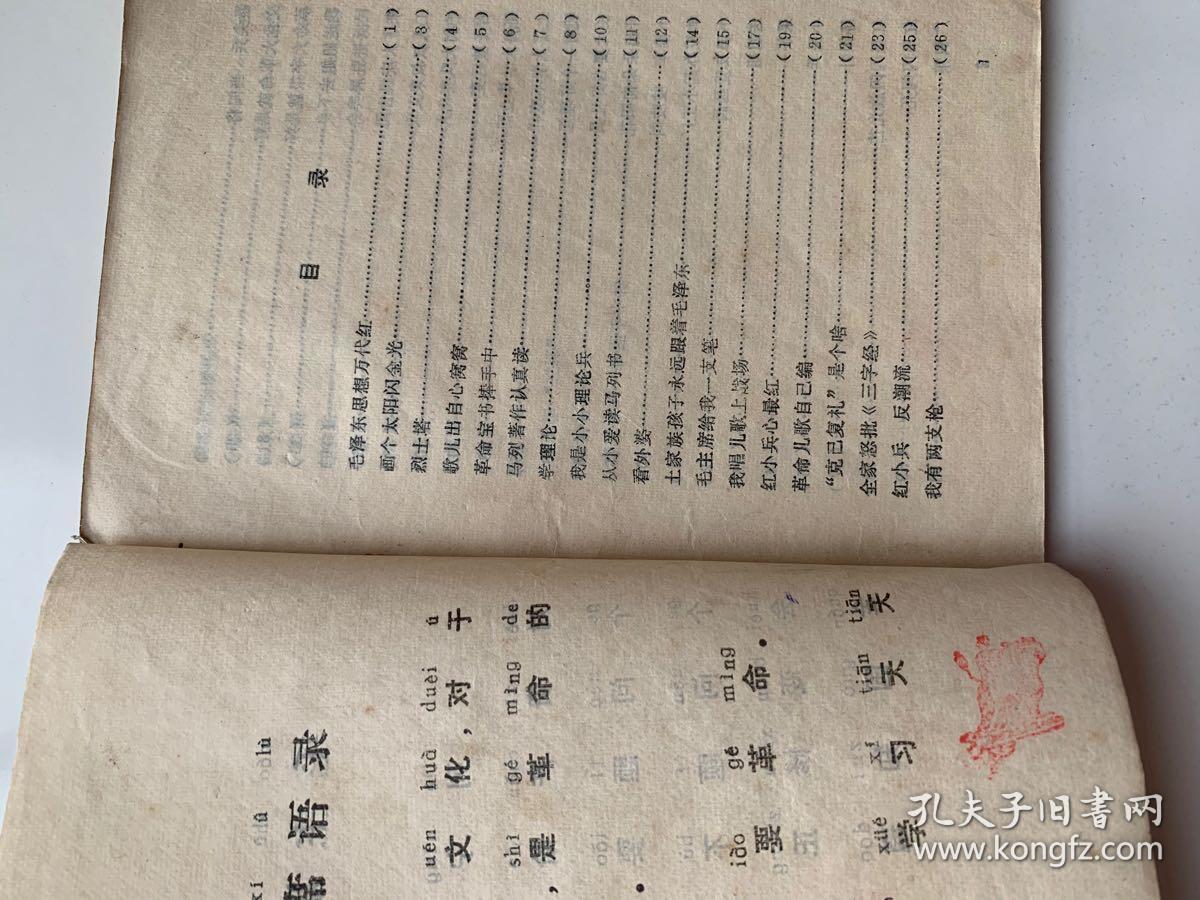 目录
毛泽东思想万代红……(1)
画个太阳闪金光……(3)
烈士塔……(4)
歌儿出自心窝窝……(5)
革命宝书捧手中……(6)
马列著作认真读……(7)
学理论……(8)
我是小小理论兵……(10)
从小爱读马列书……(11)
看外婆……(12)
土家族孩子永远跟着毛泽东……(14)
毛主席给我一支笔……(15)
我唱儿歌上战场……(17)
红小兵心最红……(19)
革命儿歌自己编……(20)
“克己复礼”是个啥……(21)
全家怒批《三字经》……(23)
红小兵 反潮流……(25)
我有两支枪……(26)
1
xí yǔ lù
席语录
wén huà duì yú
文化，对于
shì gé mìng de
，是革命的
。
yào gé mìng
要革命。
xué xí tiān tiān
学习天天
孔夫子旧书网
www.kongfz.com